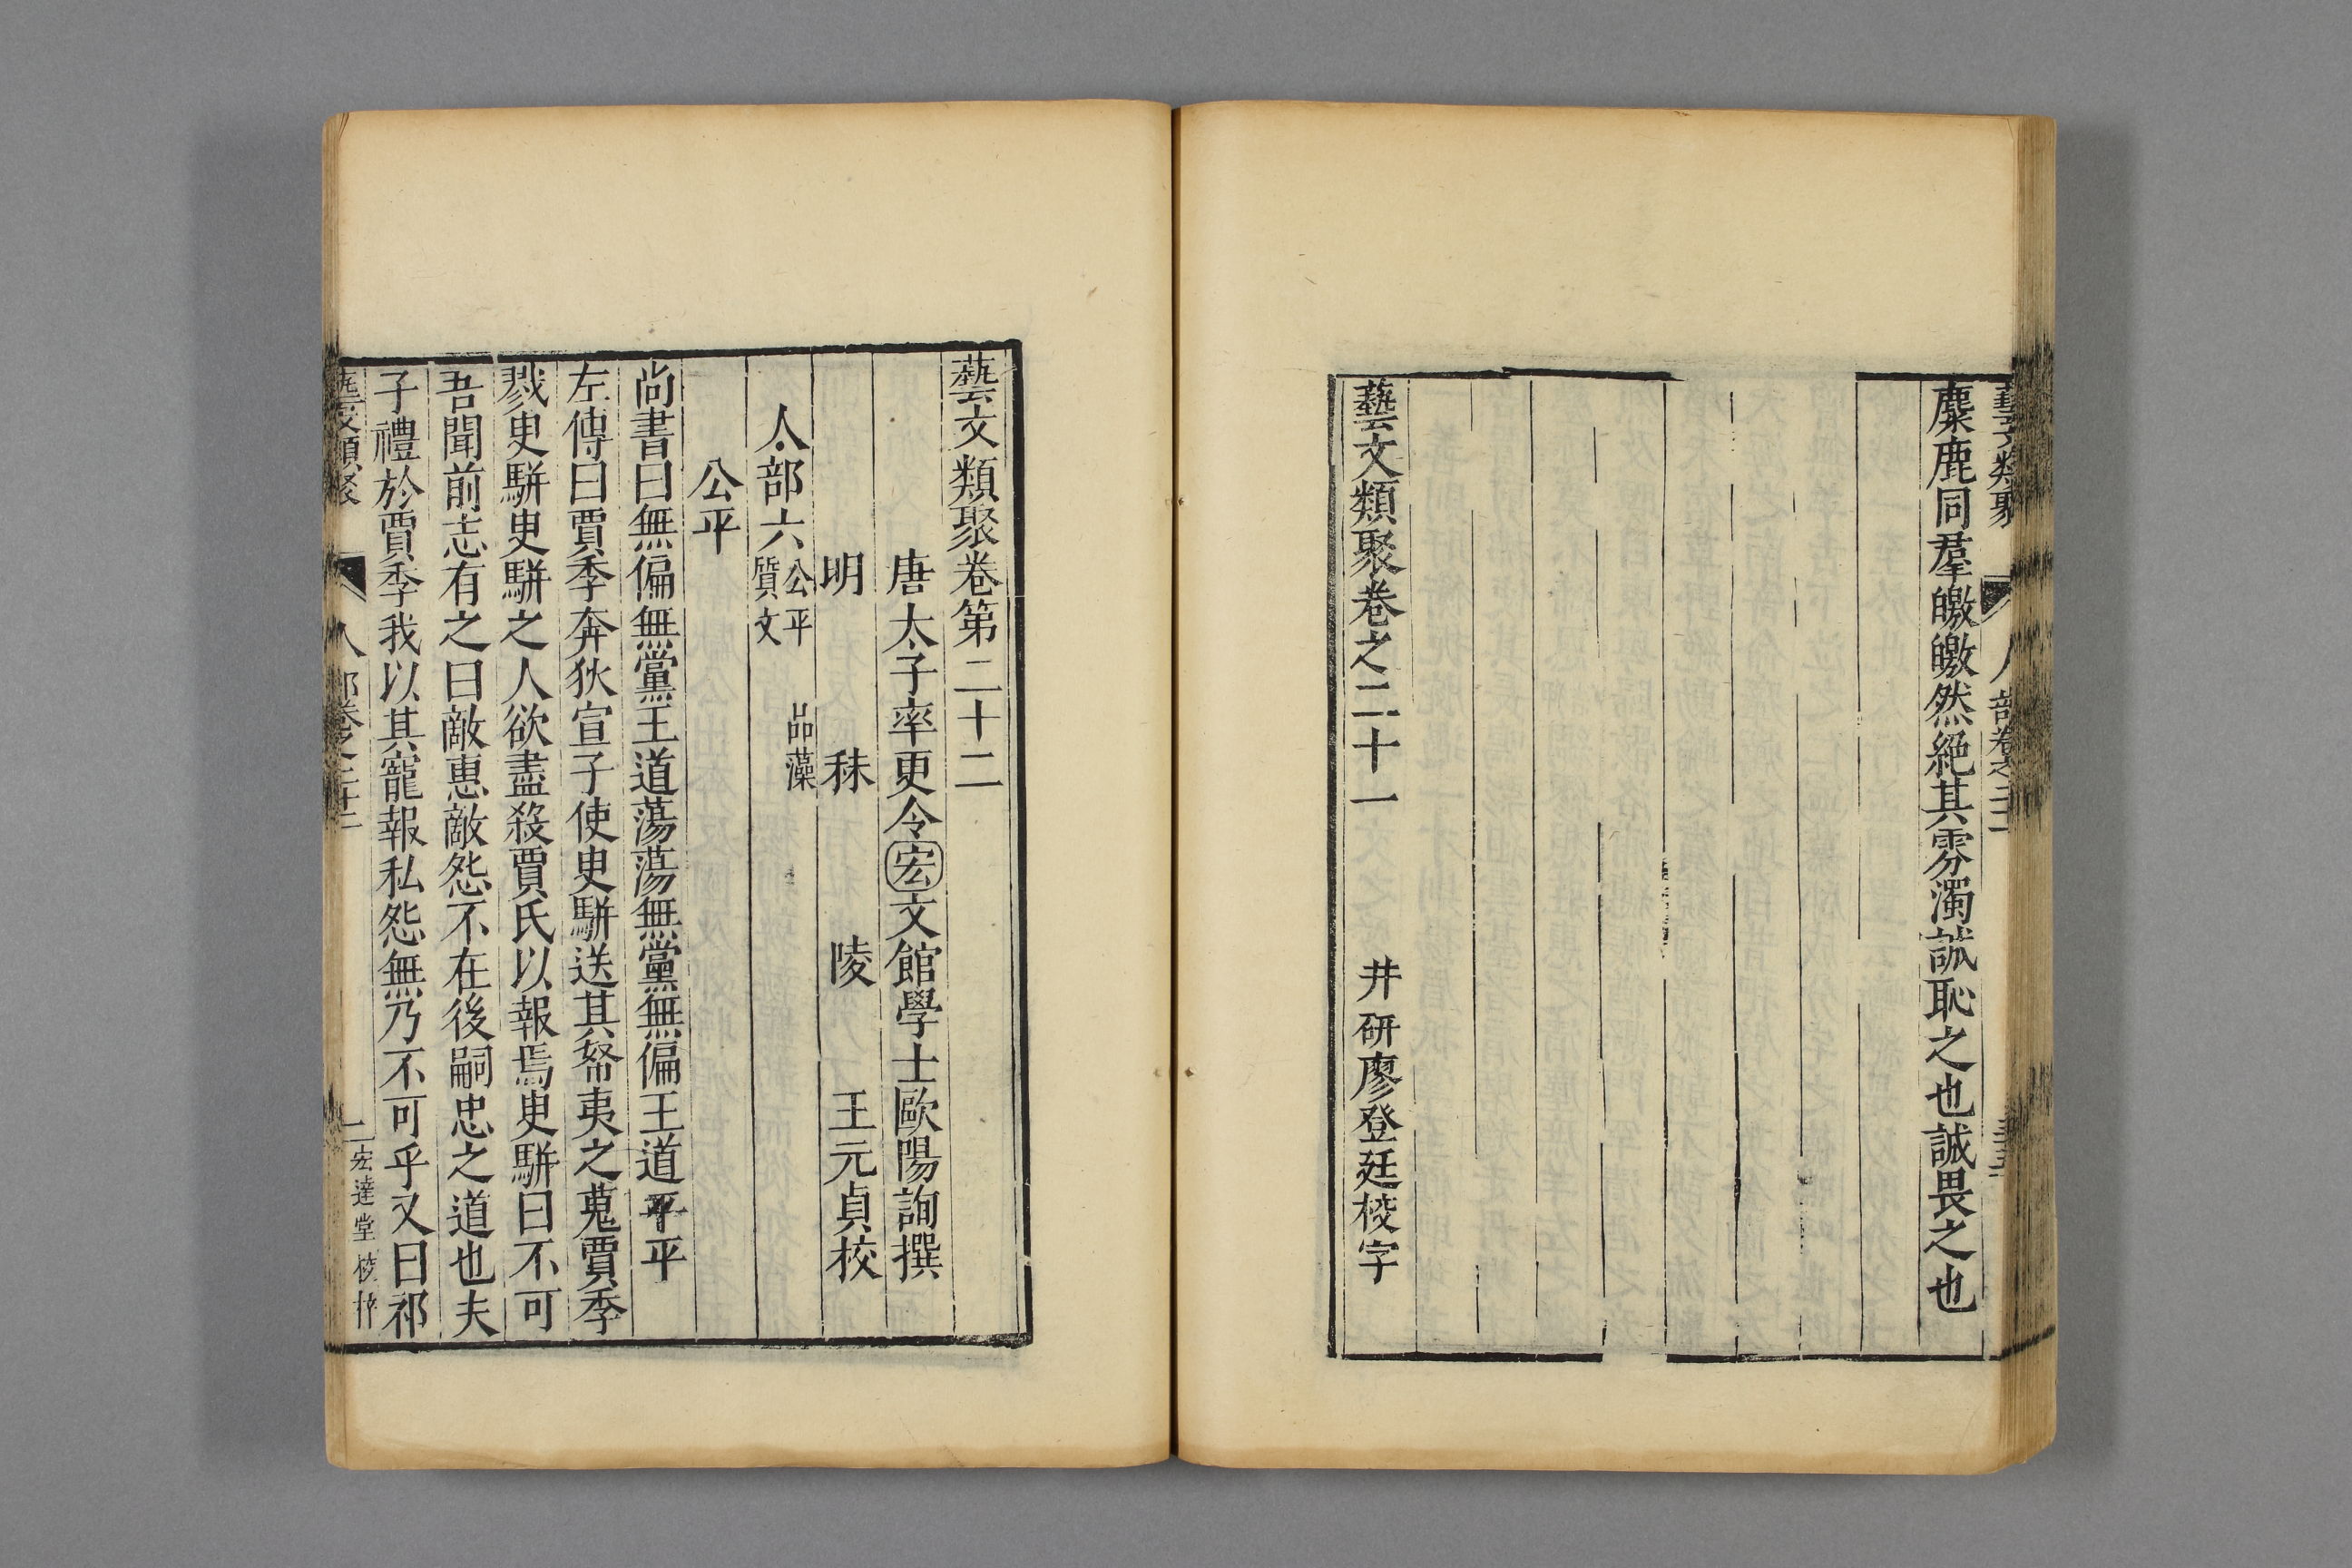 藝文類聚
人部卷之二十一
麋鹿同羣皦皦然絕其雰濁誠恥之也誠畏之也
藝文類聚卷之二十一
井研廖登廷校字
藝文類聚卷第二十二
唐太子率更令宏文館學士歐陽詢撰
明 秣陵 王元貞校
人部六 公平 品藻
質文
公平
尚書曰無偏無黨王道蕩蕩無黨無偏王道平平
左傳曰賈季奔狄宣子使臾駢送其帑夷之蒐賈季
戮臾駢臾駢之人欲盡殺賈氏以報焉臾駢曰不可
吾聞前志有之曰敵惠敵怨不在後嗣忠之道也夫
子禮於賈季我以其寵報私怨無乃不可乎又曰祁
藝文類聚
人部卷之二十二
一 宏達堂校梓